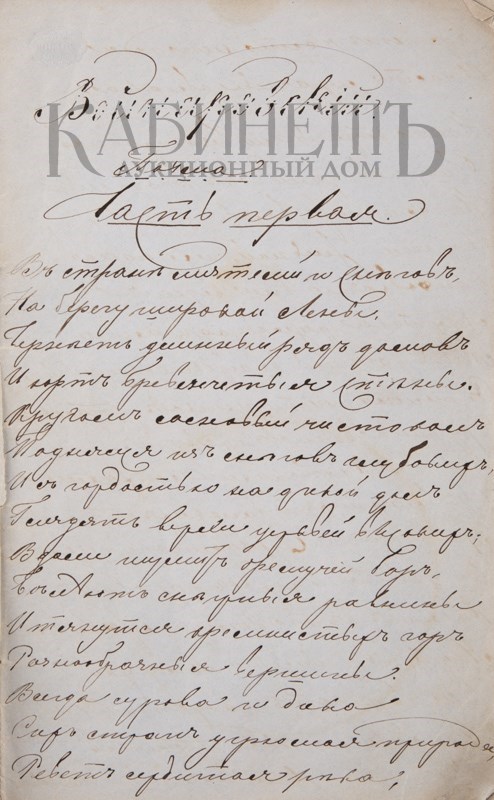 Войнаровскій.
КАБИНЕТЪ
АУКЦИОННЫЙ ДОМ
Поэма
Часть первая.
Въ странѣ мятелей и снѣговъ,
На берегу широкой Лены,
Чернѣетъ длинный рядъ домовъ
И юртъ бревенчатыя стѣны.
Кругомъ сосновый частоколъ
Поднялся изъ снѣговъ глубокихъ,
И съ гордостью на дикой долъ
Глядятъ верхи церквей высокихъ;
Вдали шумитъ дремучій боръ,
Бѣлѣютъ снѣжныя равнины
И тянутся кремнистыхъ горъ
Разнообразныя вершины.
Всегда сурова и дика
Сихъ странъ угрюмая природа,
Реветъ сердитая рѣка,